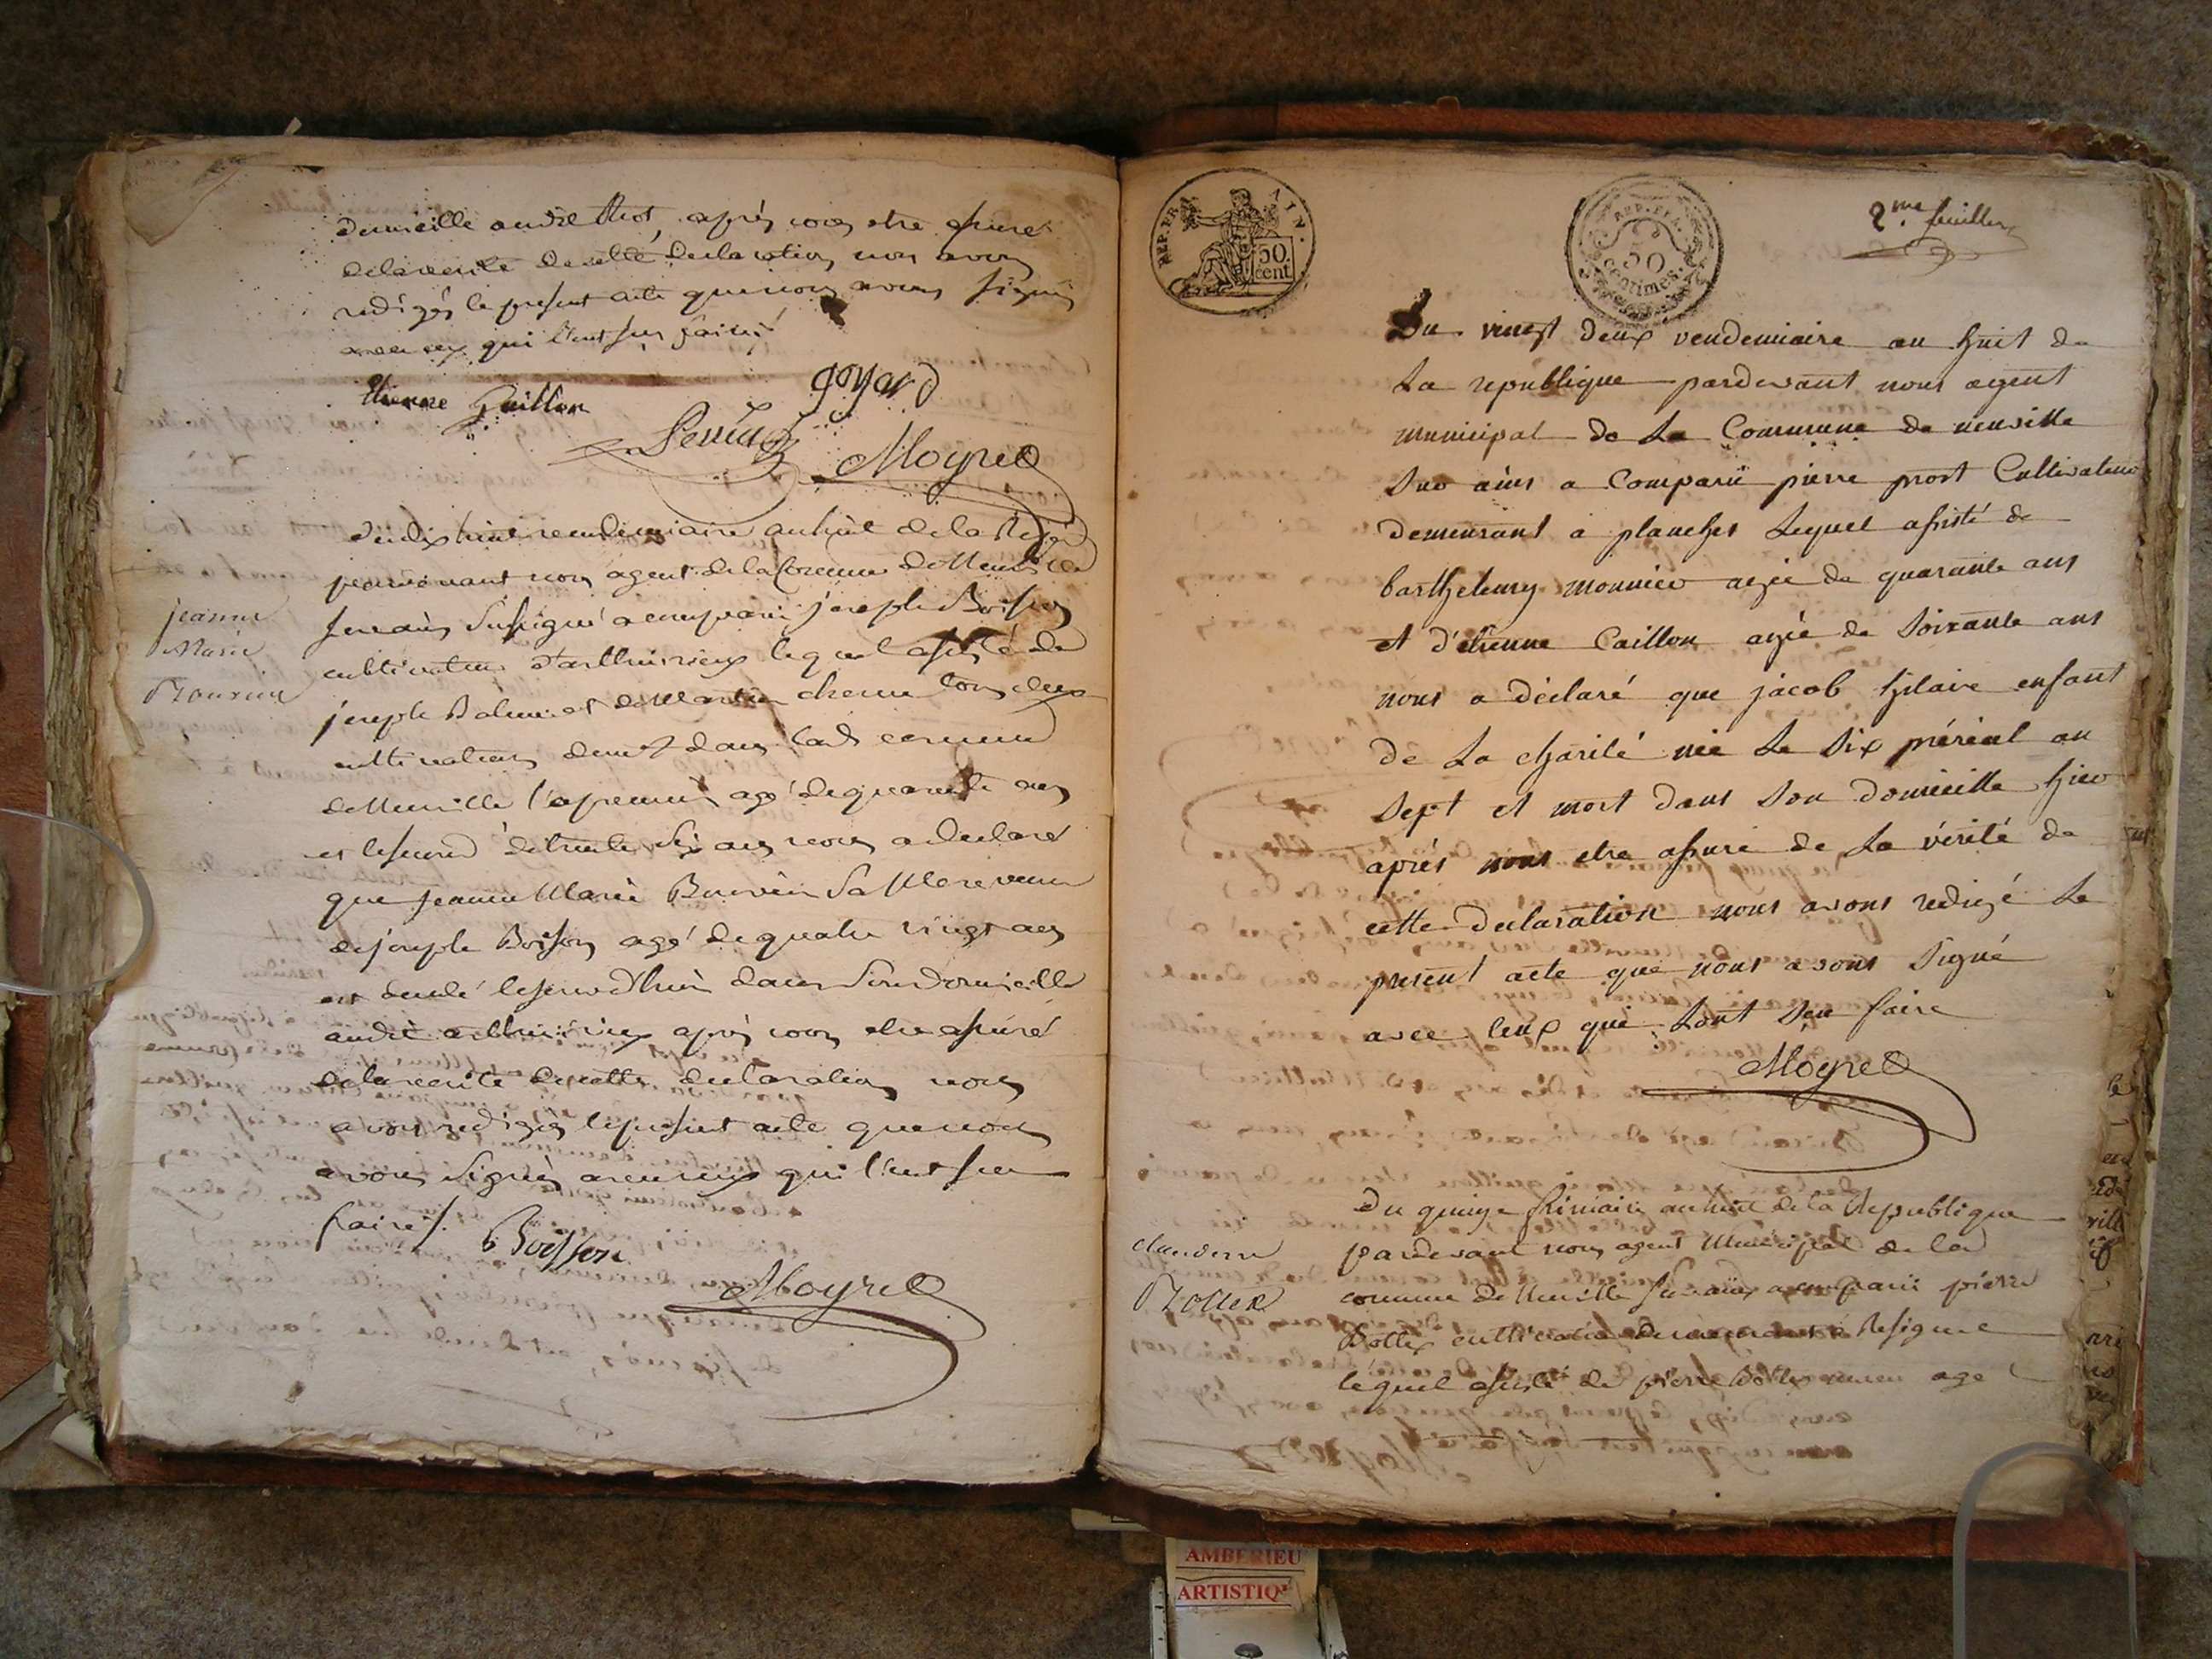 domicille audit thol, après nous etre assurés
de la verité de cette declaration nous avons
redigés le present acte que nous avons signés
avec ceux qui l'ont sçu faire
Etienne Guillon
goyard
Moyret
du dix huit vendemiaire an huit de la Repub
pardevant nous agent de la Commune de Neuville
sur ain soussigné a comparu joseph Boisson
cultivateur
lequel assisté de
joseph
et de Martin chenu tous deux
cultivateurs demt dans lad commune
de Neuville l'apremier agé de quarante ans
et le second de trente six ans nous a declaré
que jeanne Marie Bourin sa Mere veuve
de joseph Boisson agé de quatre vingt ans
est decedé lejourdhui dans son domicille
audit
après nous etre assuré
de la verité de cette declaration nous
avons redigés le present acte que nous
avons signés avec ceux qui l'ont sçu
faire
jeanne
Marie
Bourin
Boisson
Moyret
REP. FRA
50.
cent.
REP. FRA.
50
centimes.
2me feuillet
Du vingt deux vendemiaire an huit de
La republique pardevant nous agent
municipal de La Commune de neuville
Sur ains a Comparü pierre prost Cultivateur
demeurant a planches Lequel assisté de
barthelemy monnier agée de quarante ans
et d'étienne Caillon agée de Soixante ans
nous a déclaré que jacob hilaire enfant
de La charité née Le Six préreal an
Sept et mort dans Son domicille hier
après nous etre assuré de La vérité de
cette declaration nous avons redigé Le
present acte que nous avons Signé
avec Ceux qui Lont Seu faire
Moyret
Du quinze frimaire an huit de la Republique
pardevant nous agent Municipal de lad
commune de Neuville sur ain a comparü pierre
Bottex cultivateur demeurant a Resignel
lequel assisté de pierre Bottex
age
AMBERIEU
ARTISTIQ